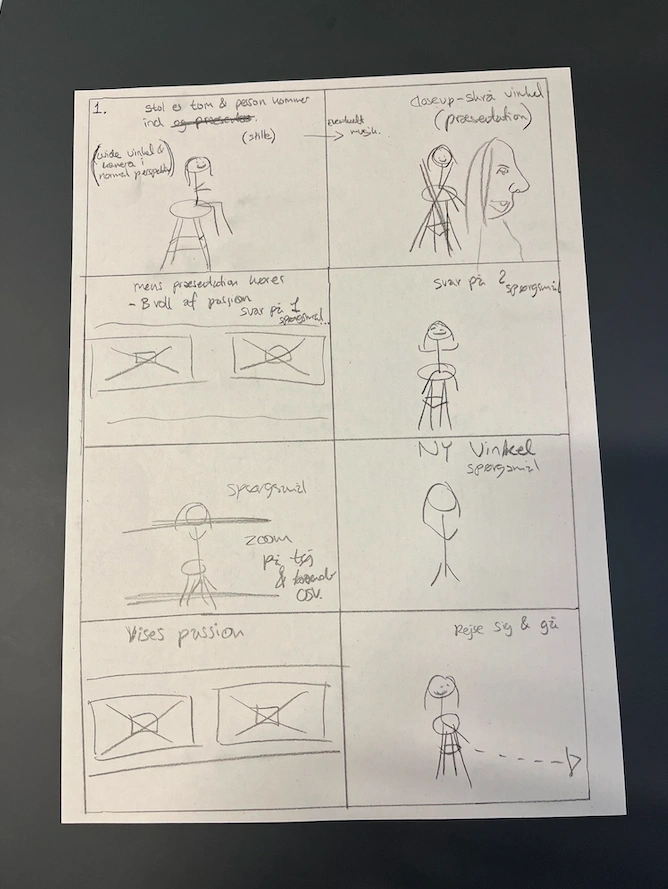 1.
Stol er tom & person kommer
ind og præsentes.
(stille)
(wide vinkel &
kamera i
normal perspektiv)
eventuelt
musik.
closeup-skrå vinkel
(præsentation)
mens præsentation kører
- B roll af passion
svar på 1
spørgsmål..
svar på 2
spørgsmål
spørgsmål
zoom
på tøj
&
osv.
NY Vinkel
spørgsmål
Vises passion
Rejse sig & gå